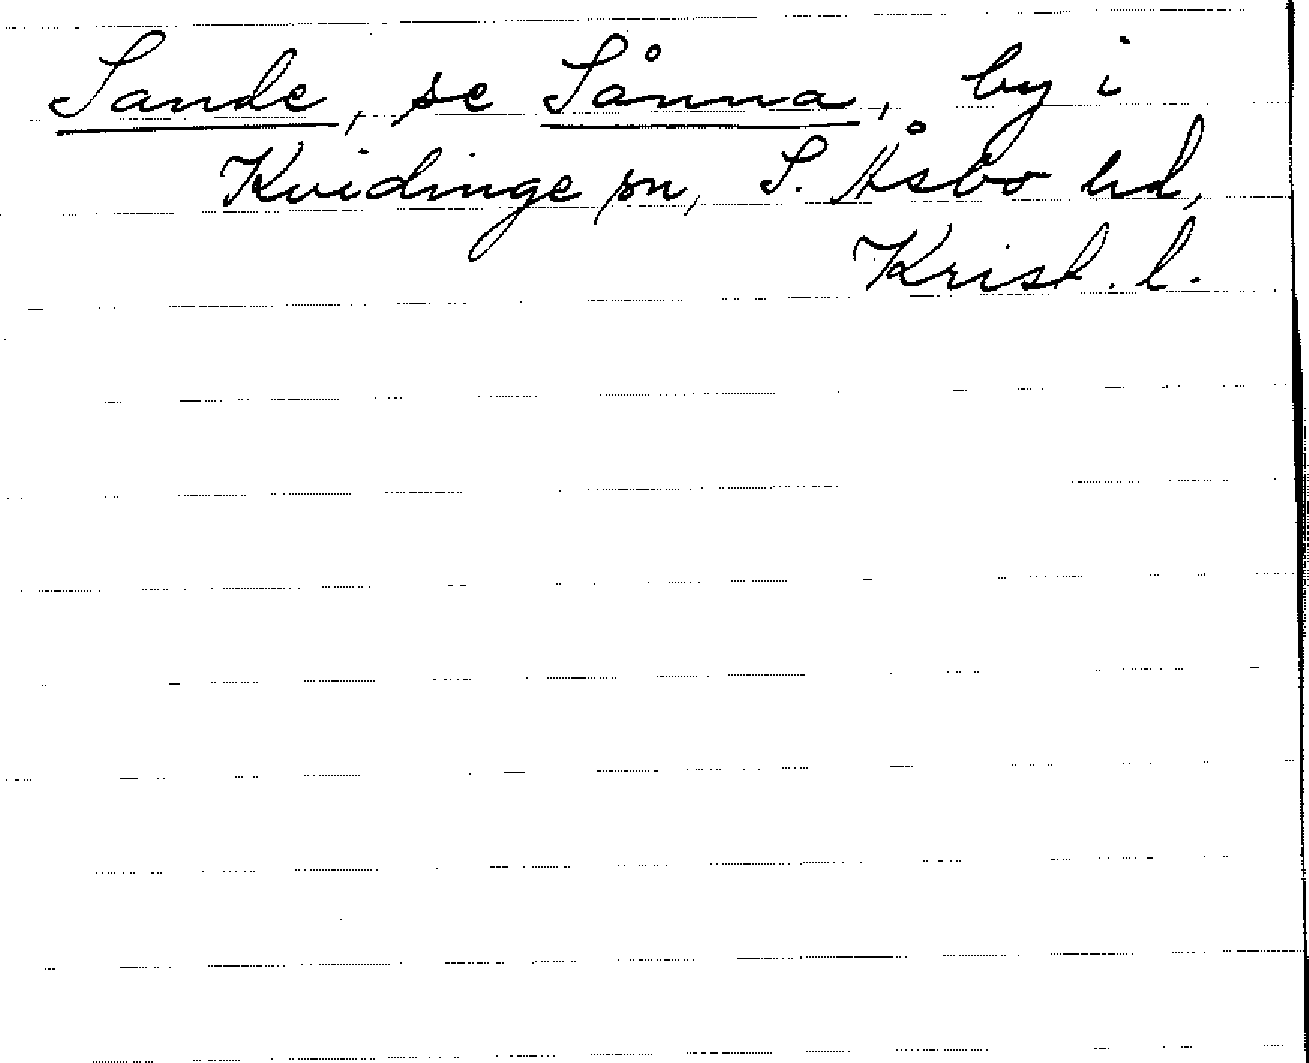 Sande, se Sånna, by i
Kvidinge sn, S. Åsbo hd,
Krist. l.